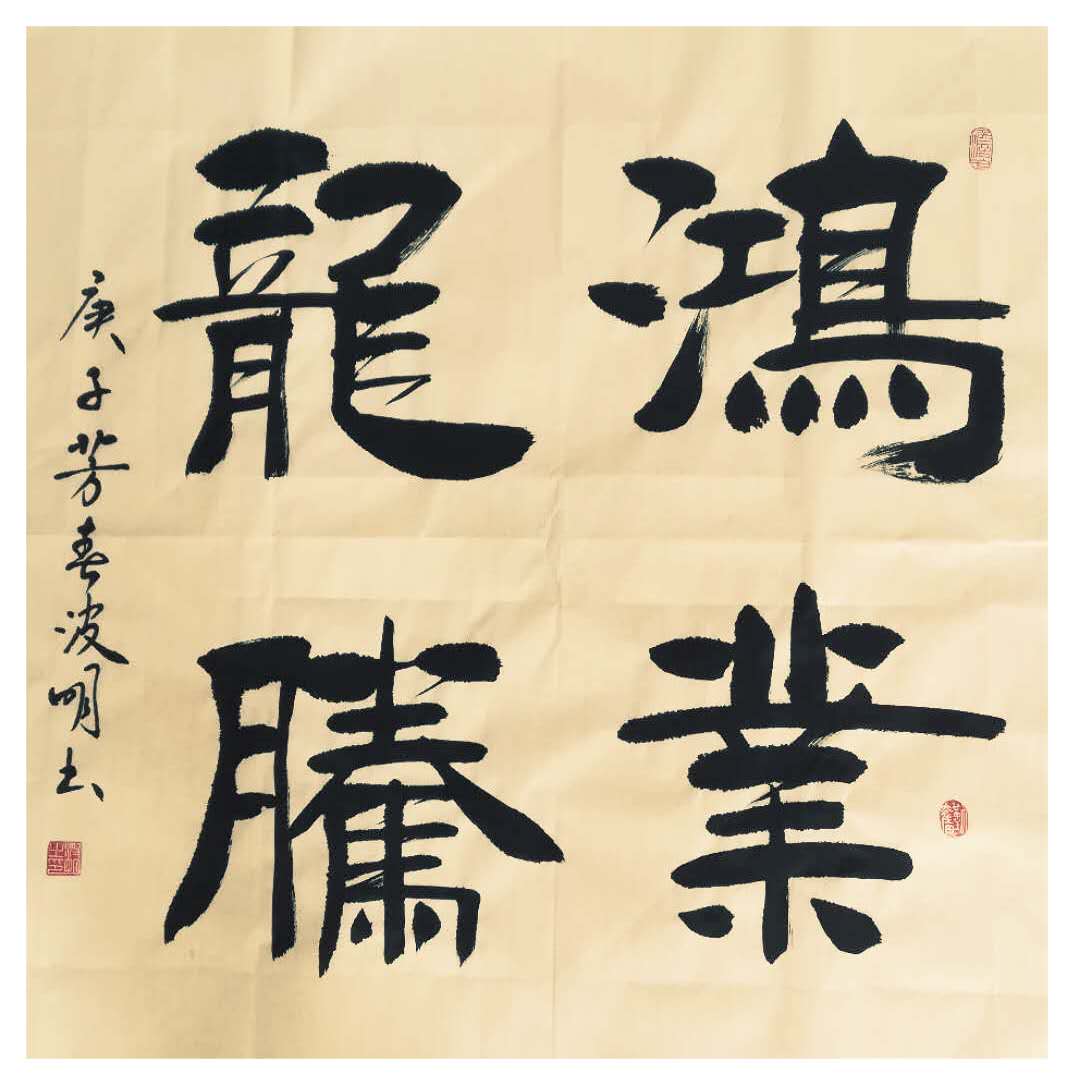 鴻業
龍騰
庚子芳春波明书